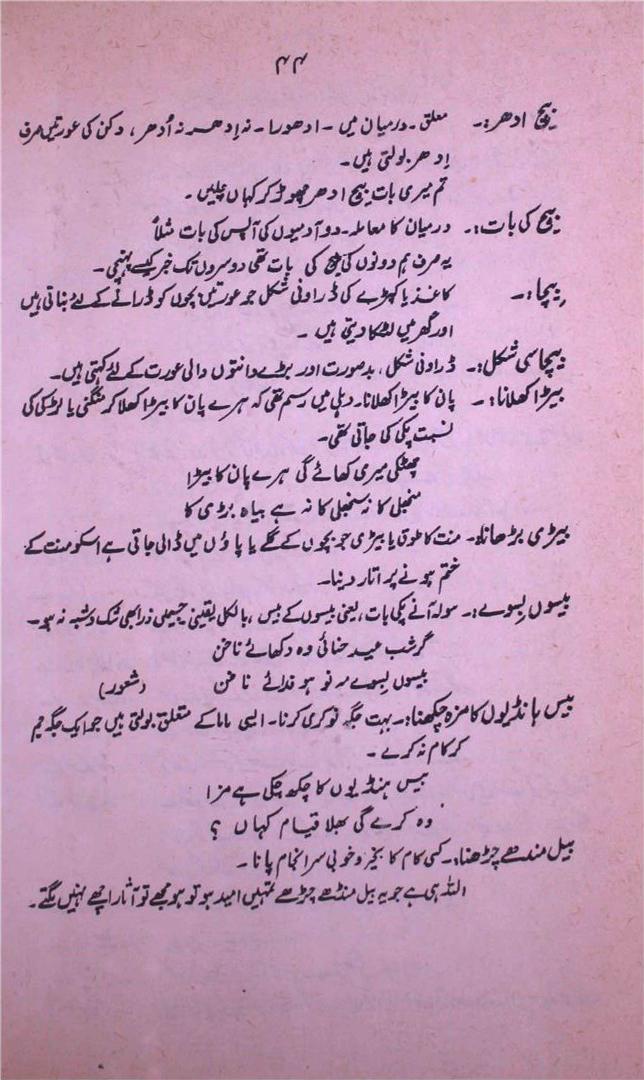 ۴۴
بیچ ادھر:۔ معلق۔ درمیان میں۔ ادھورا۔ نہ اِدھر نہ اُدھر، دکن کی عورتیں صرف
اِدھر بولتی ہیں۔
تم میری بات بیچ ادھر چھوڑ کر کہاں چلیں۔
بیچ کی بات:۔ درمیان کا معاملہ۔ دو آدمیوں کی آپس کی بات مثلاً
یہ صرف ہم دونوں کی بیچ کی بات تھی دوسروں تک خبر کیسے پہنچی۔
بیچا:۔ کاغذ یا کپڑے کی ڈراونی شکل جو عورتیں بچوں کو ڈرانے کے لئے بناتی ہیں
اور گھر میں لٹکا دیتی ہیں۔
بیچا سی شکل:۔ ڈراونی شکل، بدصورت اور بڑے دانتوں والی عورت کے لئے کہتی ہیں۔
بیڑا کھلانا:۔ پان کا بیڑا کھلانا۔ دہلی میں رسم تھی کہ ہرے پان کا بیڑا کھلا کر منگنی یا لڑکی کی
نسبت پکی کی جاتی تھی۔
چھٹکی میری کھائے گی ہرے پان کا بیڑا
منجھلی کا نہ سنجھلی کا نہ ہے بیاہ بڑی کا
بیڑی بڑھانا:۔ منت کا طوق یا بیڑی جو بچوں کے گلے یا پاؤں میں ڈالی جاتی ہے اسکو منت کے
ختم ہونے پر اتار دینا۔
بیسوں بسوے:۔ سولہ آنے پکی بات، یعنی بیسوں کے بیس، بالکل یقینی جسمیں ذرا بھی شک و شبہ نہ ہو۔
گر شب عید حنائی وہ دکھائے ناخن
بیسوں بسوے مہ نو ہو فدائے ناخن (شعور)
بیس ہانڈیوں کا مزہ چکھنا:۔ بہت جگہ نوکری کرنا۔ ایسی ماما کے متعلق بولتی ہیں جو ایک جگہ جم
کر کام نہ کرے۔
بیس ہنڈیوں کا چکھ چکی ہے مزا
وہ کرے گی بھلا قیام کہاں ؟
بیل منڈھے چڑھنا:۔ کسی کام کا بخیر و خوبی سر انجام پانا۔
اللہ ہی ہے جو یہ بیل منڈھے چڑھے تمہیں امید ہو تو ہو مجھے تو آثار اچھے نہیں لگتے۔